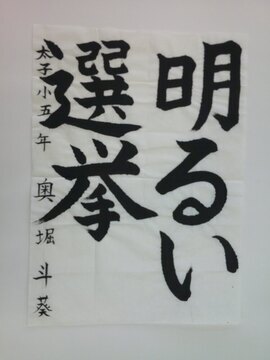 明るい
選挙
太子小五年 奥堀斗葵